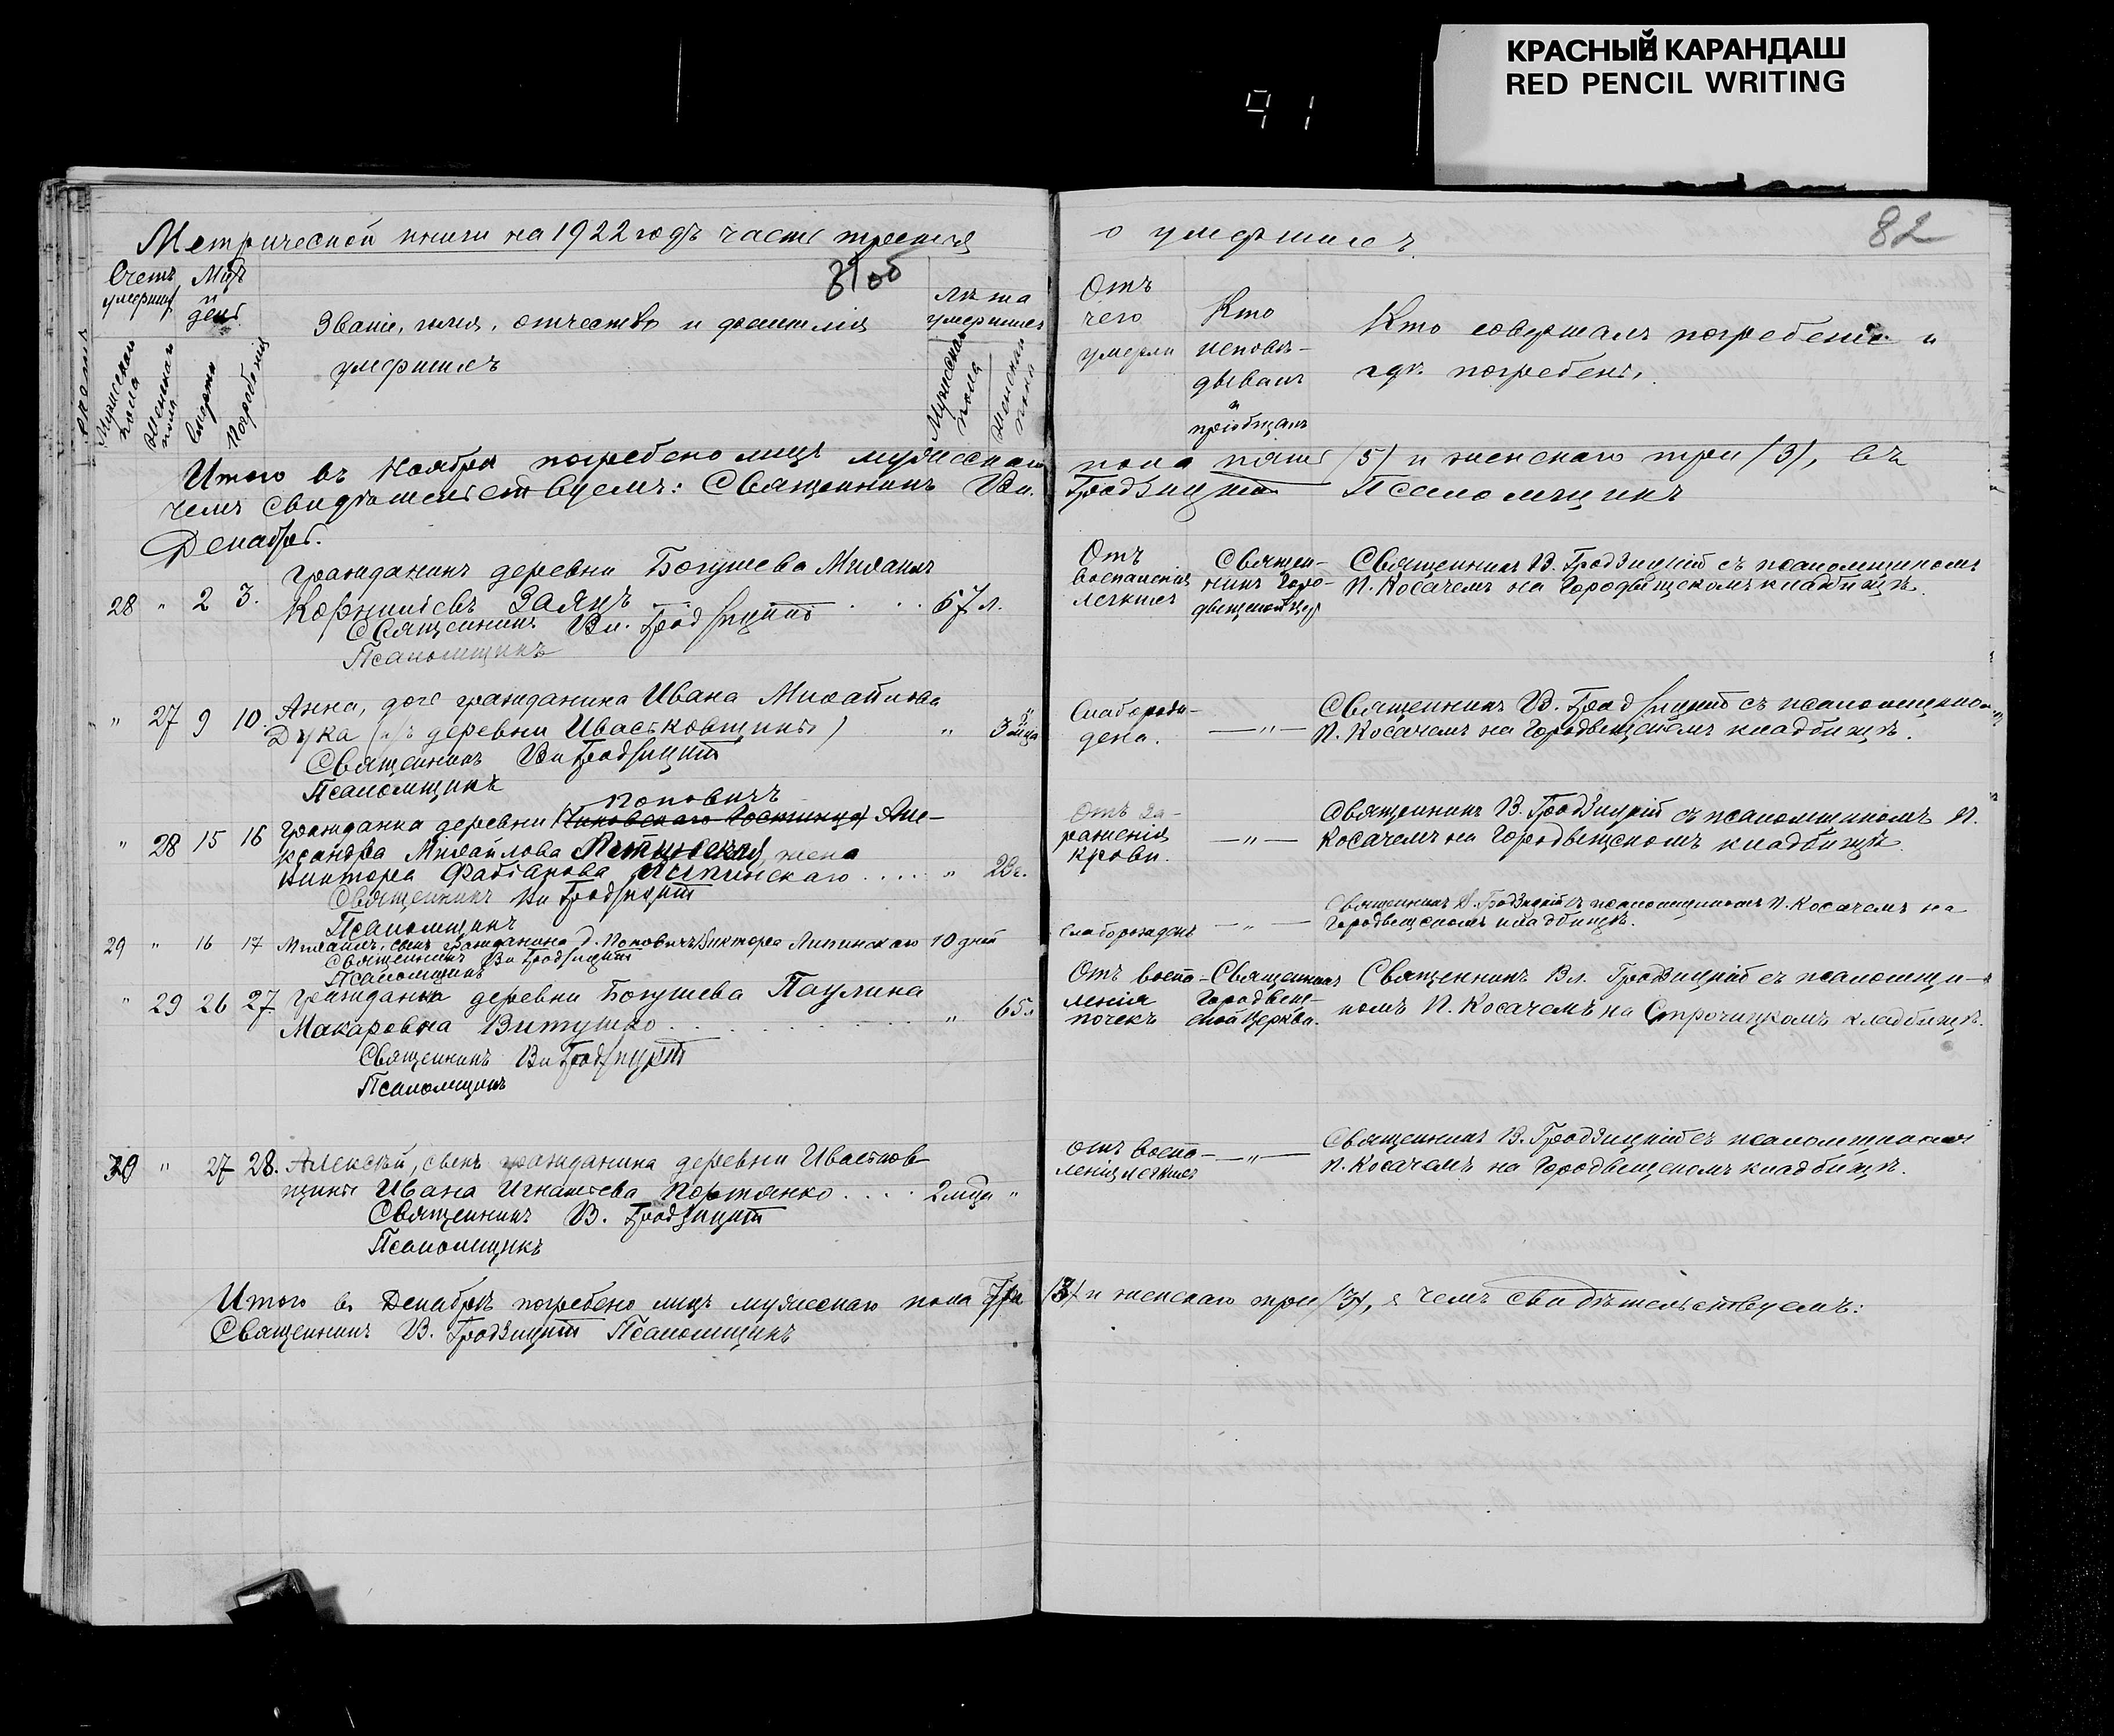 КРАСНЫЙ КАРАНДАШ
RED PENCIL WRITING
91
Метрической книги на 1922 годъ часть третья
81об
Счетъ умершихъ
Мѣс. и день
Мужескаго пола
Женскаго пола
Смерти
Погребенія
Званіе, имя, отчество и фамилія
умершихъ
Лѣта
умершихъ
Мужескаго пола
Женскаго пола
Итого въ Ноябрѣ погребено лицъ мужескаго
чемъ свидѣтельствуемъ: Священникъ Вл.
Декабрь.
Гражданинъ деревни Богушева Михаилъ
28 " 2 3. Корнильевъ Заяцъ . . . . . 67 л.
Священникъ Вл. Гродзицкій
Псаломщикъ
Анна, дочь гражданина Ивана Михайлова
" 27 9 10. Дука (изъ деревни Иваськовщины) " 3 м-ца
Священникъ Вл. Гродзицкій
Псаломщикъ
Поповичъ
Гражданка деревни Але-
" 28 15 16 ксандра Михайлова Липинская, жена
Виктора Фабіанова Липинскаго . . . . . " 28 г.
Священникъ Вл. Гродзицкій
Псаломщикъ
29 " 16 17 Михаилъ, сынъ гражданина д. Поповичъ Виктора Липинскаго 10 дней
Священникъ Вл. Гродзицкій
Псаломщикъ
" 29 26 27 Гражданка деревни Богушева Паулина
Макаровна Витушко . . . . . . . . " 65 л.
Священникъ Вл. Гродзицкій
Псаломщикъ
30 " 27 28. Алексѣй, сынъ гражданина деревни Иваськов-
щины Ивана Игнатьева Портянко . . . . 2 м-ца "
Священникъ В. Гродзицкій
Псаломщикъ
Итого въ Декабрѣ погребено лицъ мужескаго пола три
Священникъ В. Гродзицкій Псаломщикъ
о умершихъ.
82
Отъ
чего
умерли
Кто
исповѣ-
дывалъ
и
пріобщалъ
Кто совершалъ погребеніе и
гдѣ погребены.
пола пять /5/ и женскаго три /3/, въ
Гродзицкій Псаломщикъ
Отъ
воспаленія
легкихъ
Священ-
никъ Горо-
двищенской цер.
Священникъ В. Гродзицкій съ псаломщикомъ
П. Косачемъ на Городвищскомъ кладбищѣ.
Слаборож-
дена.
— " —
Священникъ В. Гродзицкій съ псаломщикомъ
П. Косачемъ на Городвищскомъ кладбищѣ.
Отъ за-
раженія
крови.
— " —
Священникъ В. Гродзицкій съ псаломщикомъ П.
Косачемъ на Городвищскомъ кладбищѣ.
Слаборожденъ — " —
Священникъ В. Гродзицкій съ псаломщикомъ П. Косачемъ на
Городвищскомъ кладбищѣ.
Отъ воспа-
ленія
почекъ
Священникъ
Городвищ-
ской Церкви.
Священникъ Вл. Гродзицкій съ псаломщи-
комъ П. Косачемъ на Строчицкомъ кладбищѣ.
Отъ воспа-
ленія легкихъ
— " —
Священникъ В. Гродзицкій съ псаломщикомъ
П. Косачемъ на Городвищскомъ кладбищѣ.
/3/ и женскаго три /3/, в чемъ свидѣтельствуемъ: